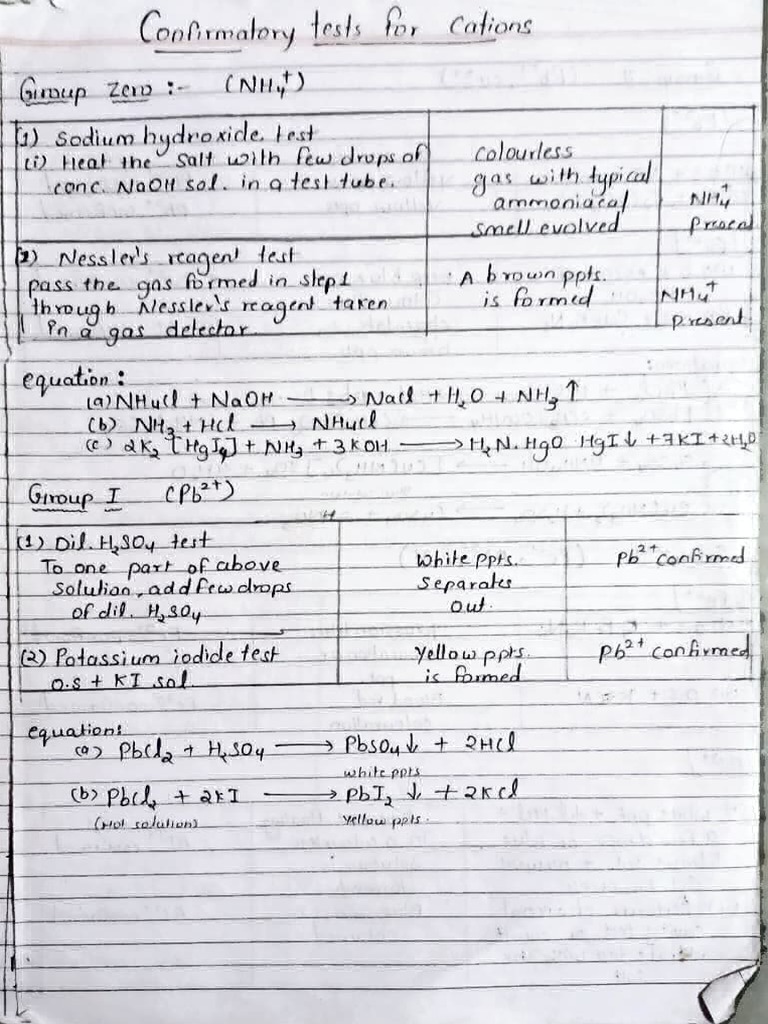 Confirmatory tests for cations
Group Zero :- (NH₄⁺)
(1) Sodium hydroxide test
(i) Heat the salt with few drops of
conc. NaOH sol. in a test tube.
colourless
gas with typical
ammoniacal
smell evolved
NH₄⁺
Present
(2) Nessler's reagent test
pass the gas formed in step 1
through Nessler's reagent taken
in a gas detector.
A brown ppts.
is formed
NH₄⁺
present
equation :
(a) NH₄Cl + NaOH → NaCl + H₂O + NH₃ ↑
(b) NH₃ + HCl → NH₄Cl
(c) 2K₂ [HgI₄] + NH₃ + 3KOH → H₂N.HgO HgI↓ + 7KI + 2H₂O
Group I (Pb²⁺)
(1) Dil. H₂SO₄ test
To one part of above
solution, add few drops
of dil. H₂SO₄
White ppts.
separates
out.
Pb²⁺ confirmed
(2) Potassium iodide test
O.S + KI sol.
Yellow ppts.
is formed
Pb²⁺ confirmed
equation:
(a) PbCl₂ + H₂SO₄ → PbSO₄↓ + 2HCl
white ppts
(b) PbCl₂ + 2KI → PbI₂ ↓ + 2KCl
(Hot solution) Yellow ppts.